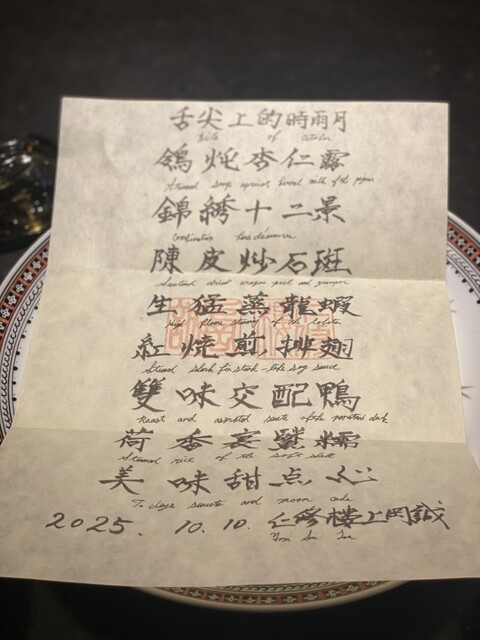 舌尖上的時雨月
of October
鴿炖杏仁露
Steamed soup apricot kernel milk of the pigeon
錦綉十二景
Combination hors d'oeuvre
陳皮炒石斑
Sauteed dried orange peel and grouper
生猛蒸龍蝦
High flame steamed of the lobster
紅燒煎排翅
Stewed shark fin steak-like soy sauce
雙味交配鴨
Roast and assorted saute of the duck
荷香宴蟹糯
Steamed rice of the soft shell
美味甜点心
Today's sweets and moon cake
2025. 10. 10. 仁修樓上岡誠